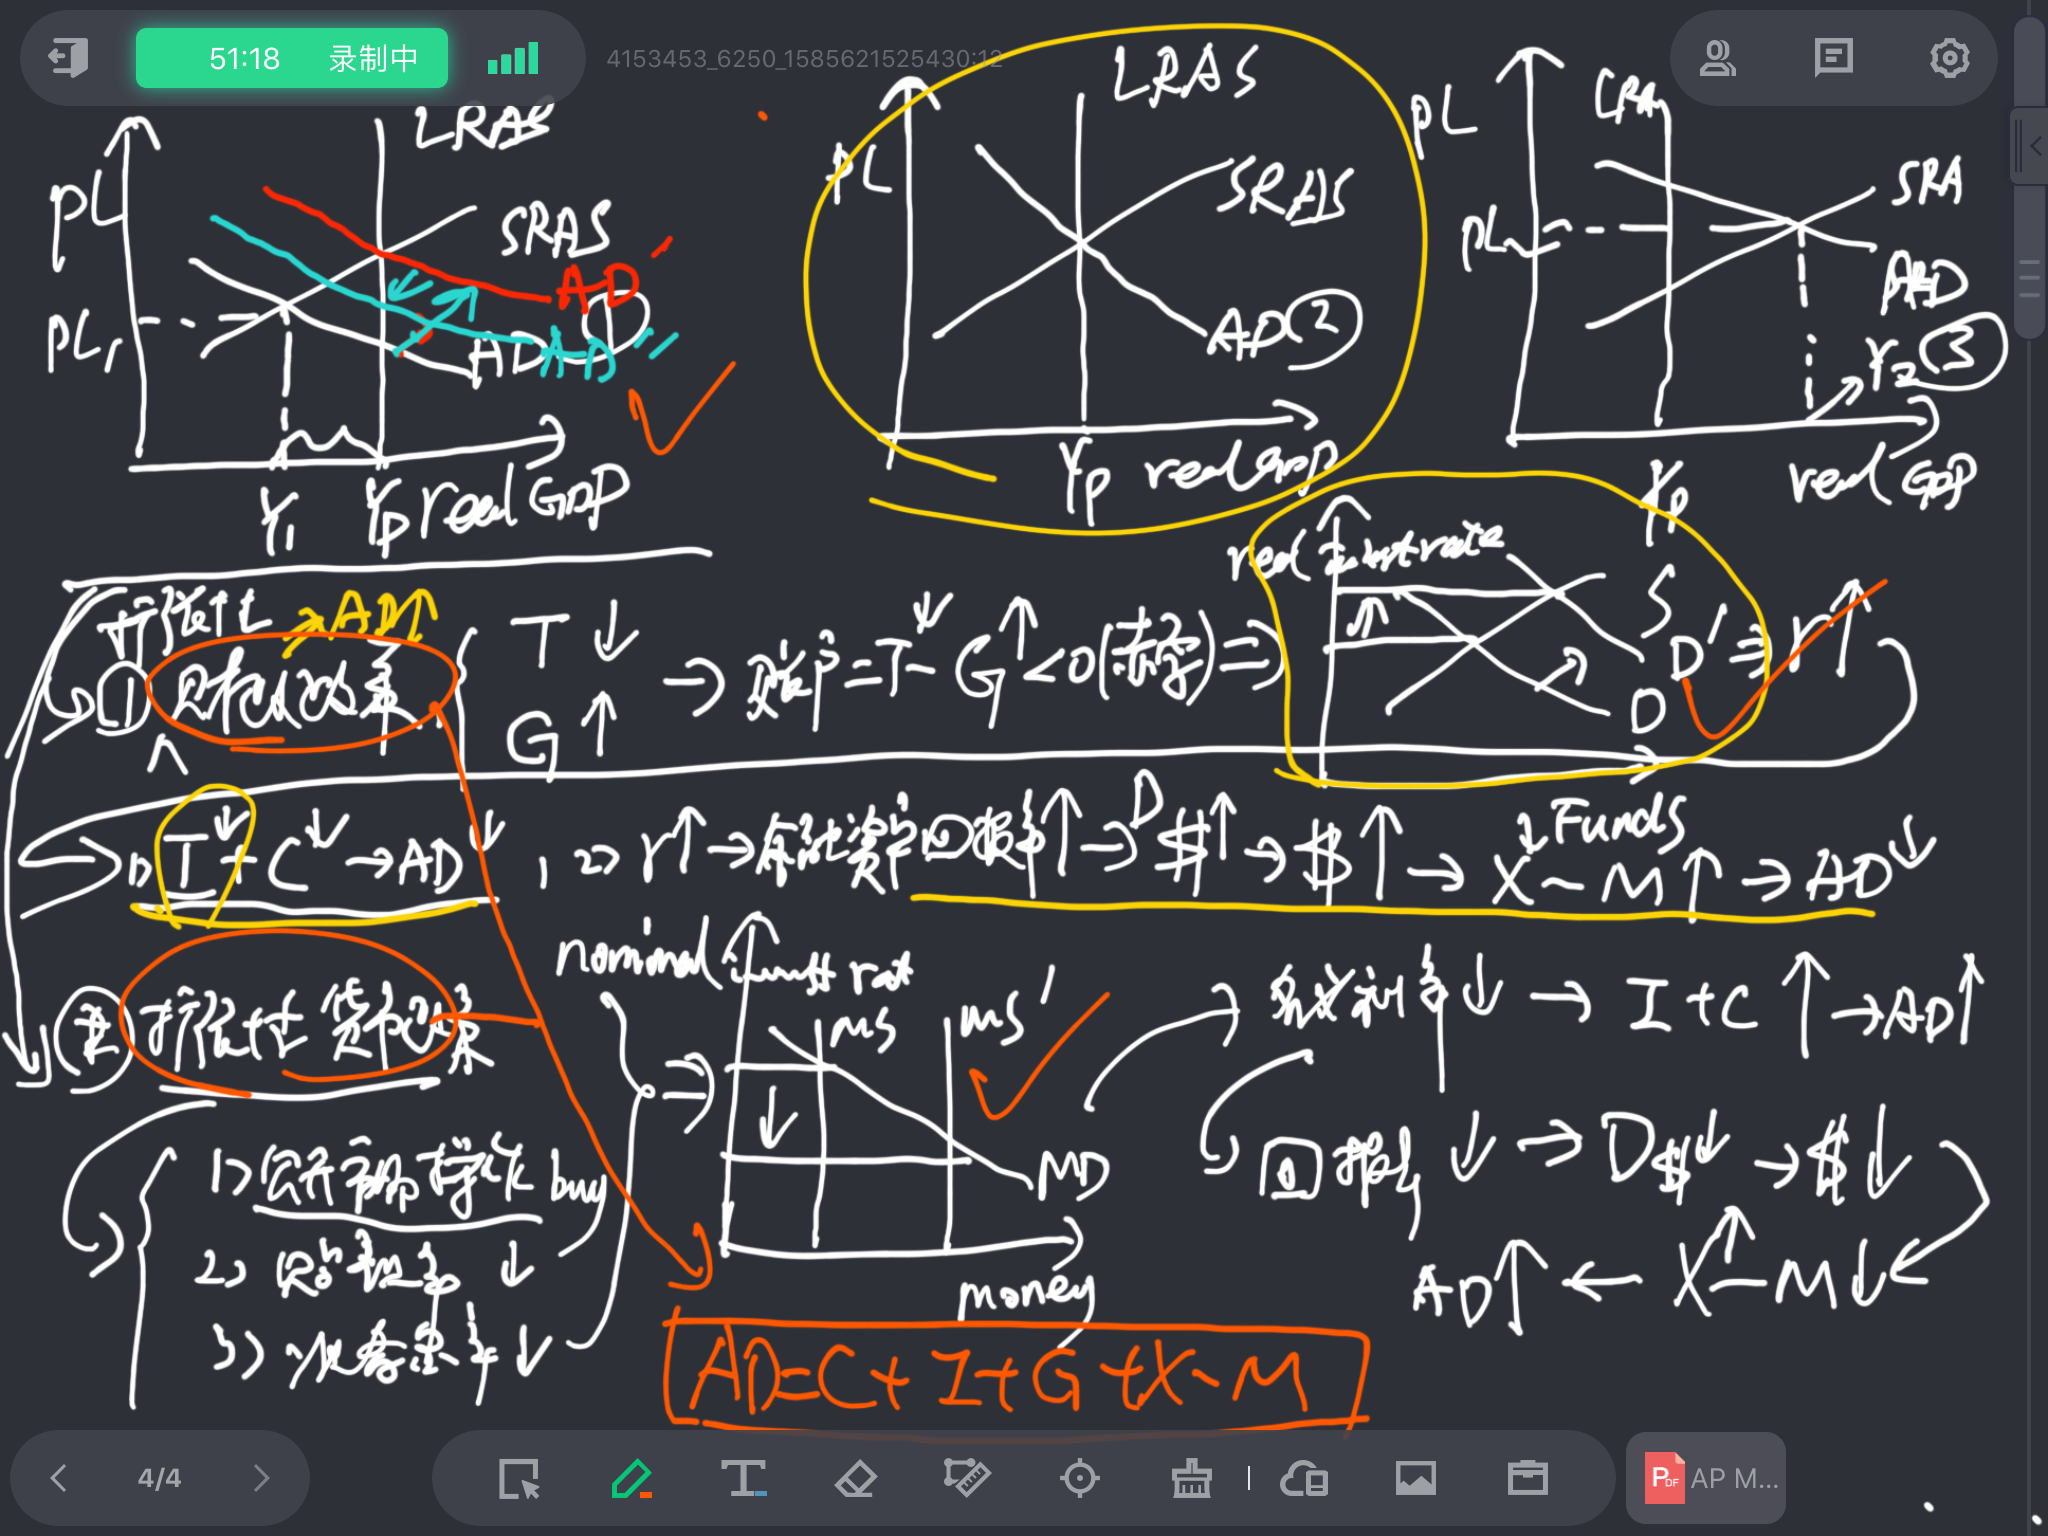 51:18 录制中
4153453_6250_1585621525430:12
PL LRAS SRAS AD' AD AD'' ① PL₁ Y₁ Yp real GDP
PL LRAS SRAS AD ② Yp real GDP
PL LRA SRA AD PL₂ Y₂ ③ Yp real GDP
扩张性 → AD↑
① 财政政策 { T↓ G↑ → 账户 = T↓ - G↑ < 0 (赤字) ⇒ real rate S D' D Funds ⇒ r↑
1) T↓ + C↓ → AD↓, 2) r↑ → 金融资产回报率↑ → D$↑ → $↑ → X↓ - M↑ → AD↓
② 扩张性货币政策
1) 公开市场操作 buy
2) ↓
3) ↓
nominal MS MS' MD money
名义利率↓ → I + C↑ → AD↑
回报率↓ → D$↓ → $↓
AD↑ ← X↑ - M↓
AD = C + I + G + X - M
4/4
PDF AP M...